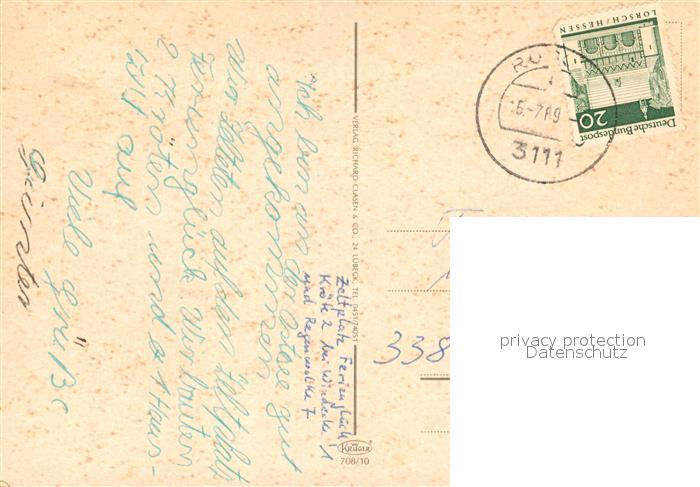 Ich bin an der Ostsee gut
angekommen
wir zelten auf dem Zeltplatz
Ferienglück. Wir bauten
2 Kröten und 1 Haus-
zelt auf
Viele Grüße
VERLAG RICHARD CLASEN & CO., 24 LÜBECK, TEL. 0451/74051
Zeltplatz Ferienglück
Kröte 2 bei Windecke 1
und Regenwolke 7
KRÜGER
708/10
LORSCH/HESSEN
20
Deutsche Bundespost
3111
338
privacy protection
Datenschutz